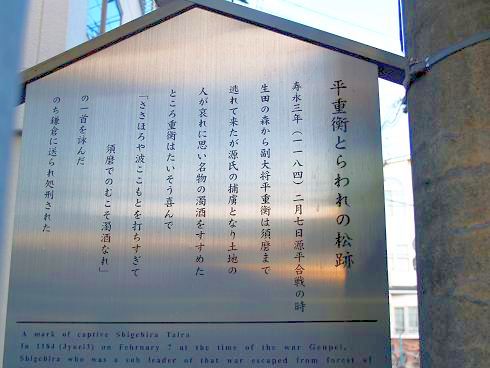 平重衡とらわれの松跡
寿永三年（一一八四）二月七日源平合戦の時
生田の森から副大将平重衡は須磨まで
逃れて来たが源氏の捕虜となり土地の
人が哀れに思い名物の濁酒をすすめた
ところ重衡はたいそう喜んで
「ささほろや波ここもとを打ちすぎて
須磨でのむこそ濁酒なれ」
の一首を詠んだ
のち鎌倉に送られ処刑された
A mark of captive Shigehira Taira
In 1184 (Jyuei3) on February 7 at the time of the war Genpei,
Shigehira who was a sub leader of that war escaped from forest of